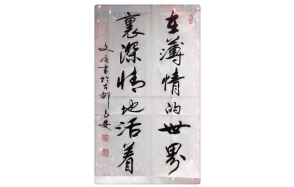 在薄情的世界
裏深情地活着
文頌書於古都長安